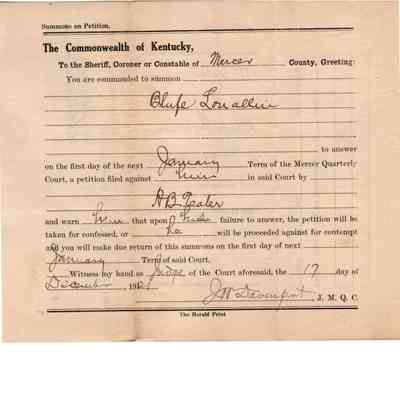 Summons on Petition.
The Commonwealth of Kentucky,
To the Sheriff, Coroner or Constable of Mercer County, Greeting:
You are commanded to summon
to answer
on the first day of the next January Term of the Mercer Quarterly
Court, a petition filed against him in said Court by
A B Teater
and warn him that upon his failure to answer, the petition will be
taken for confessed, or he will be proceeded against for contempt
and you will make due return of this summons on the first day of next
January Term of said Court.
Witness my hand as Judge of the Court aforesaid, the 17 day of
December 191
J W Davenport, J. M. Q. C.
The Herald Print